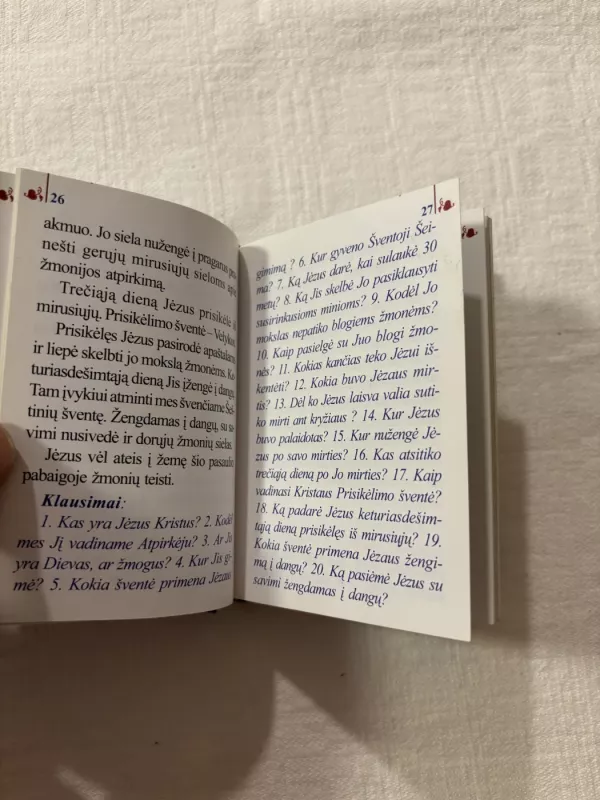 26
akmuo. Jo siela nužengė į pragarus pra
nešti gerųjų mirusiųjų sieloms apie
žmonijos atpirkimą.
Trečiąją dieną Jėzus prisikėlė iš
mirusiųjų. Prisikėlimo šventė – Velykos
Prisikėlęs Jėzus pasirodė apaštalams
ir liepė skelbti jo mokslą žmonėms. Ke
turiasdešimtąją dieną Jis įžengė į dangų.
Tam įvykiui atminti mes švenčiame Šeš
tinių šventę. Žengdamas į dangų, su sa
vimi nusivedė ir dorųjų žmonių sielas.
Jėzus vėl ateis į žemę šio pasaulio
pabaigoje žmonių teisti.
Klausimai:
1. Kas yra Jėzus Kristus? 2. Kodėl
mes Jį vadiname Atpirkėju? 3. Ar Jis
yra Dievas, ar žmogus? 4. Kur Jis gi-
mė? 5. Kokia šventė primena Jėzaus
27
gimimą ? 6. Kur gyveno Šventoji Šei-
ma? 7. Ką Jėzus darė, kai sulaukė 30
metų? 8. Ką Jis skelbė Jo pasiklausyti
susirinkusioms minioms? 9. Kodėl Jo
mokslas nepatiko blogiems žmonėms?
10. Kaip pasielgė su Juo blogi žmo-
nės? 11. Kokias kančias teko Jėzui iš-
kentėti? 12. Kokia buvo Jėzaus mir-
tis? 13. Dėl ko Jėzus laisva valia suti-
ko mirti ant kryžiaus ? 14. Kur Jėzus
buvo palaidotas? 15. Kur nužengė Jė-
zus po savo mirties? 16. Kas atsitiko
trečiąją dieną po Jo mirties? 17. Kaip
vadinasi Kristaus Prisikėlimo šventė?
18. Ką padarė Jėzus keturiasdešim-
tąją dieną prisikėlęs iš mirusiųjų? 19.
Kokia šventė primena Jėzaus žengi-
mą į dangų? 20. Ką pasiėmė Jėzus su
savimi žengdamas į dangų?